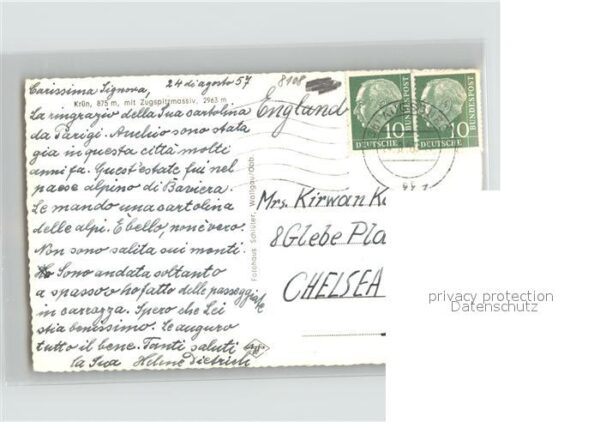 24 di agosto 57
8108
Carissima Signora,
Krün, 875 m, mit Zugspitzmassiv, 2963 m
La ringrazio della Sua cartolina
da Parigi. Anchio sono stata
gia in questa città molti
anni fa. Quest'estate fui nel
paese alpino di Baviera.
Le mando una cartolina
delle alpi. È bello, non è vero.
Non son salita sui monti.
Sono andata soltanto
a spasso o ho fatto delle passeggiate
in carrozza. Spero che Lei
stia benissimo. Le auguro
tutto il bene. Tanti saluti
la Sua Helene Dietrich
England
Fotohaus Schluter, Wallgau/Obb.
10
DEUTSCHE
BUNDESPOST
10
DEUTSCHE
BUNDESPOST
Mrs. Kirwan
8 Glebe Pla
CHELSEA
privacy protection
Datenschutz